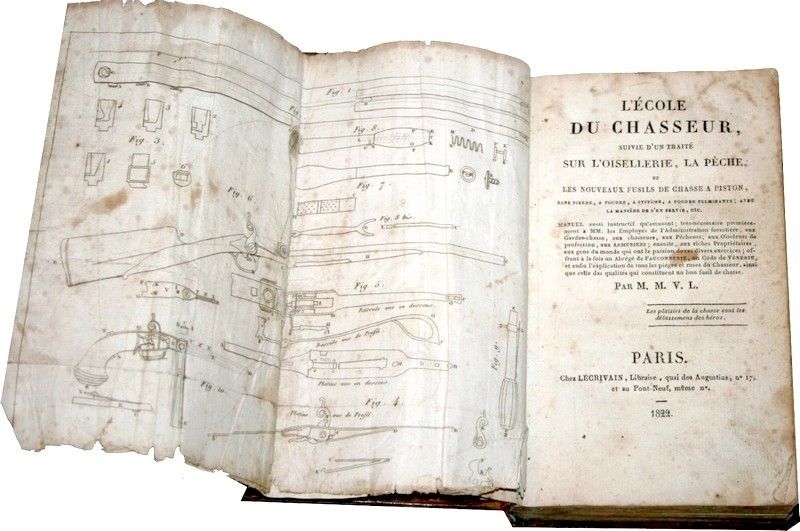 Fig. 1
Fig. 3.
Fig. 8.
Fig. 7
Fig. 6
Fig. 8 bis.
Fig. 5
Bascule vue en dessous.
Bascule vue de Profil.
Platine vue en dessous
Fig. 9
Fig. 10
Fig. 4.
Platine vue de Profil.
L'ÉCOLE
DU CHASSEUR,
SUIVIE D'UN TRAITÉ
SUR L'OISELLERIE, LA PÊCHE,
ET
LES NOUVEAUX FUSILS DE CHASSE A PISTON,
SANS PIERRE, A POUDRE, A SYSTÈME, A POUDRE FULMINANTE; AVEC
LA MANIÈRE DE S'EN SERVIR, etc.
MANUEL aussi instructif qu'amusant; très-nécessaire première-
ment à MM. les Employés de l'Administration forestière; aux
Gardes-chasse, aux chasseurs, aux Pêcheurs, aux Oiseleurs de
profession, aux ARMURIERS; ensuite, aux riches Propriétaires,
aux gens du monde qui ont la passion de ces divers exercices; of-
frant à la fois un Abrégé de FAUCONNERIE, un Code de VÉNERIE,
et enfin l'explication de tous les pièges et ruses du Chasseur, ainsi
que celle des qualités qui constituent un bon fusil de chasse.
PAR M. M. V. L.
Les plaisirs de la chasse sont les
délassemens des héros.
PARIS.
Chez LÉCRIVAIN, Libraire, quai des Augustins, n° 17,
et au Pont-Neuf, même n°.
1822.